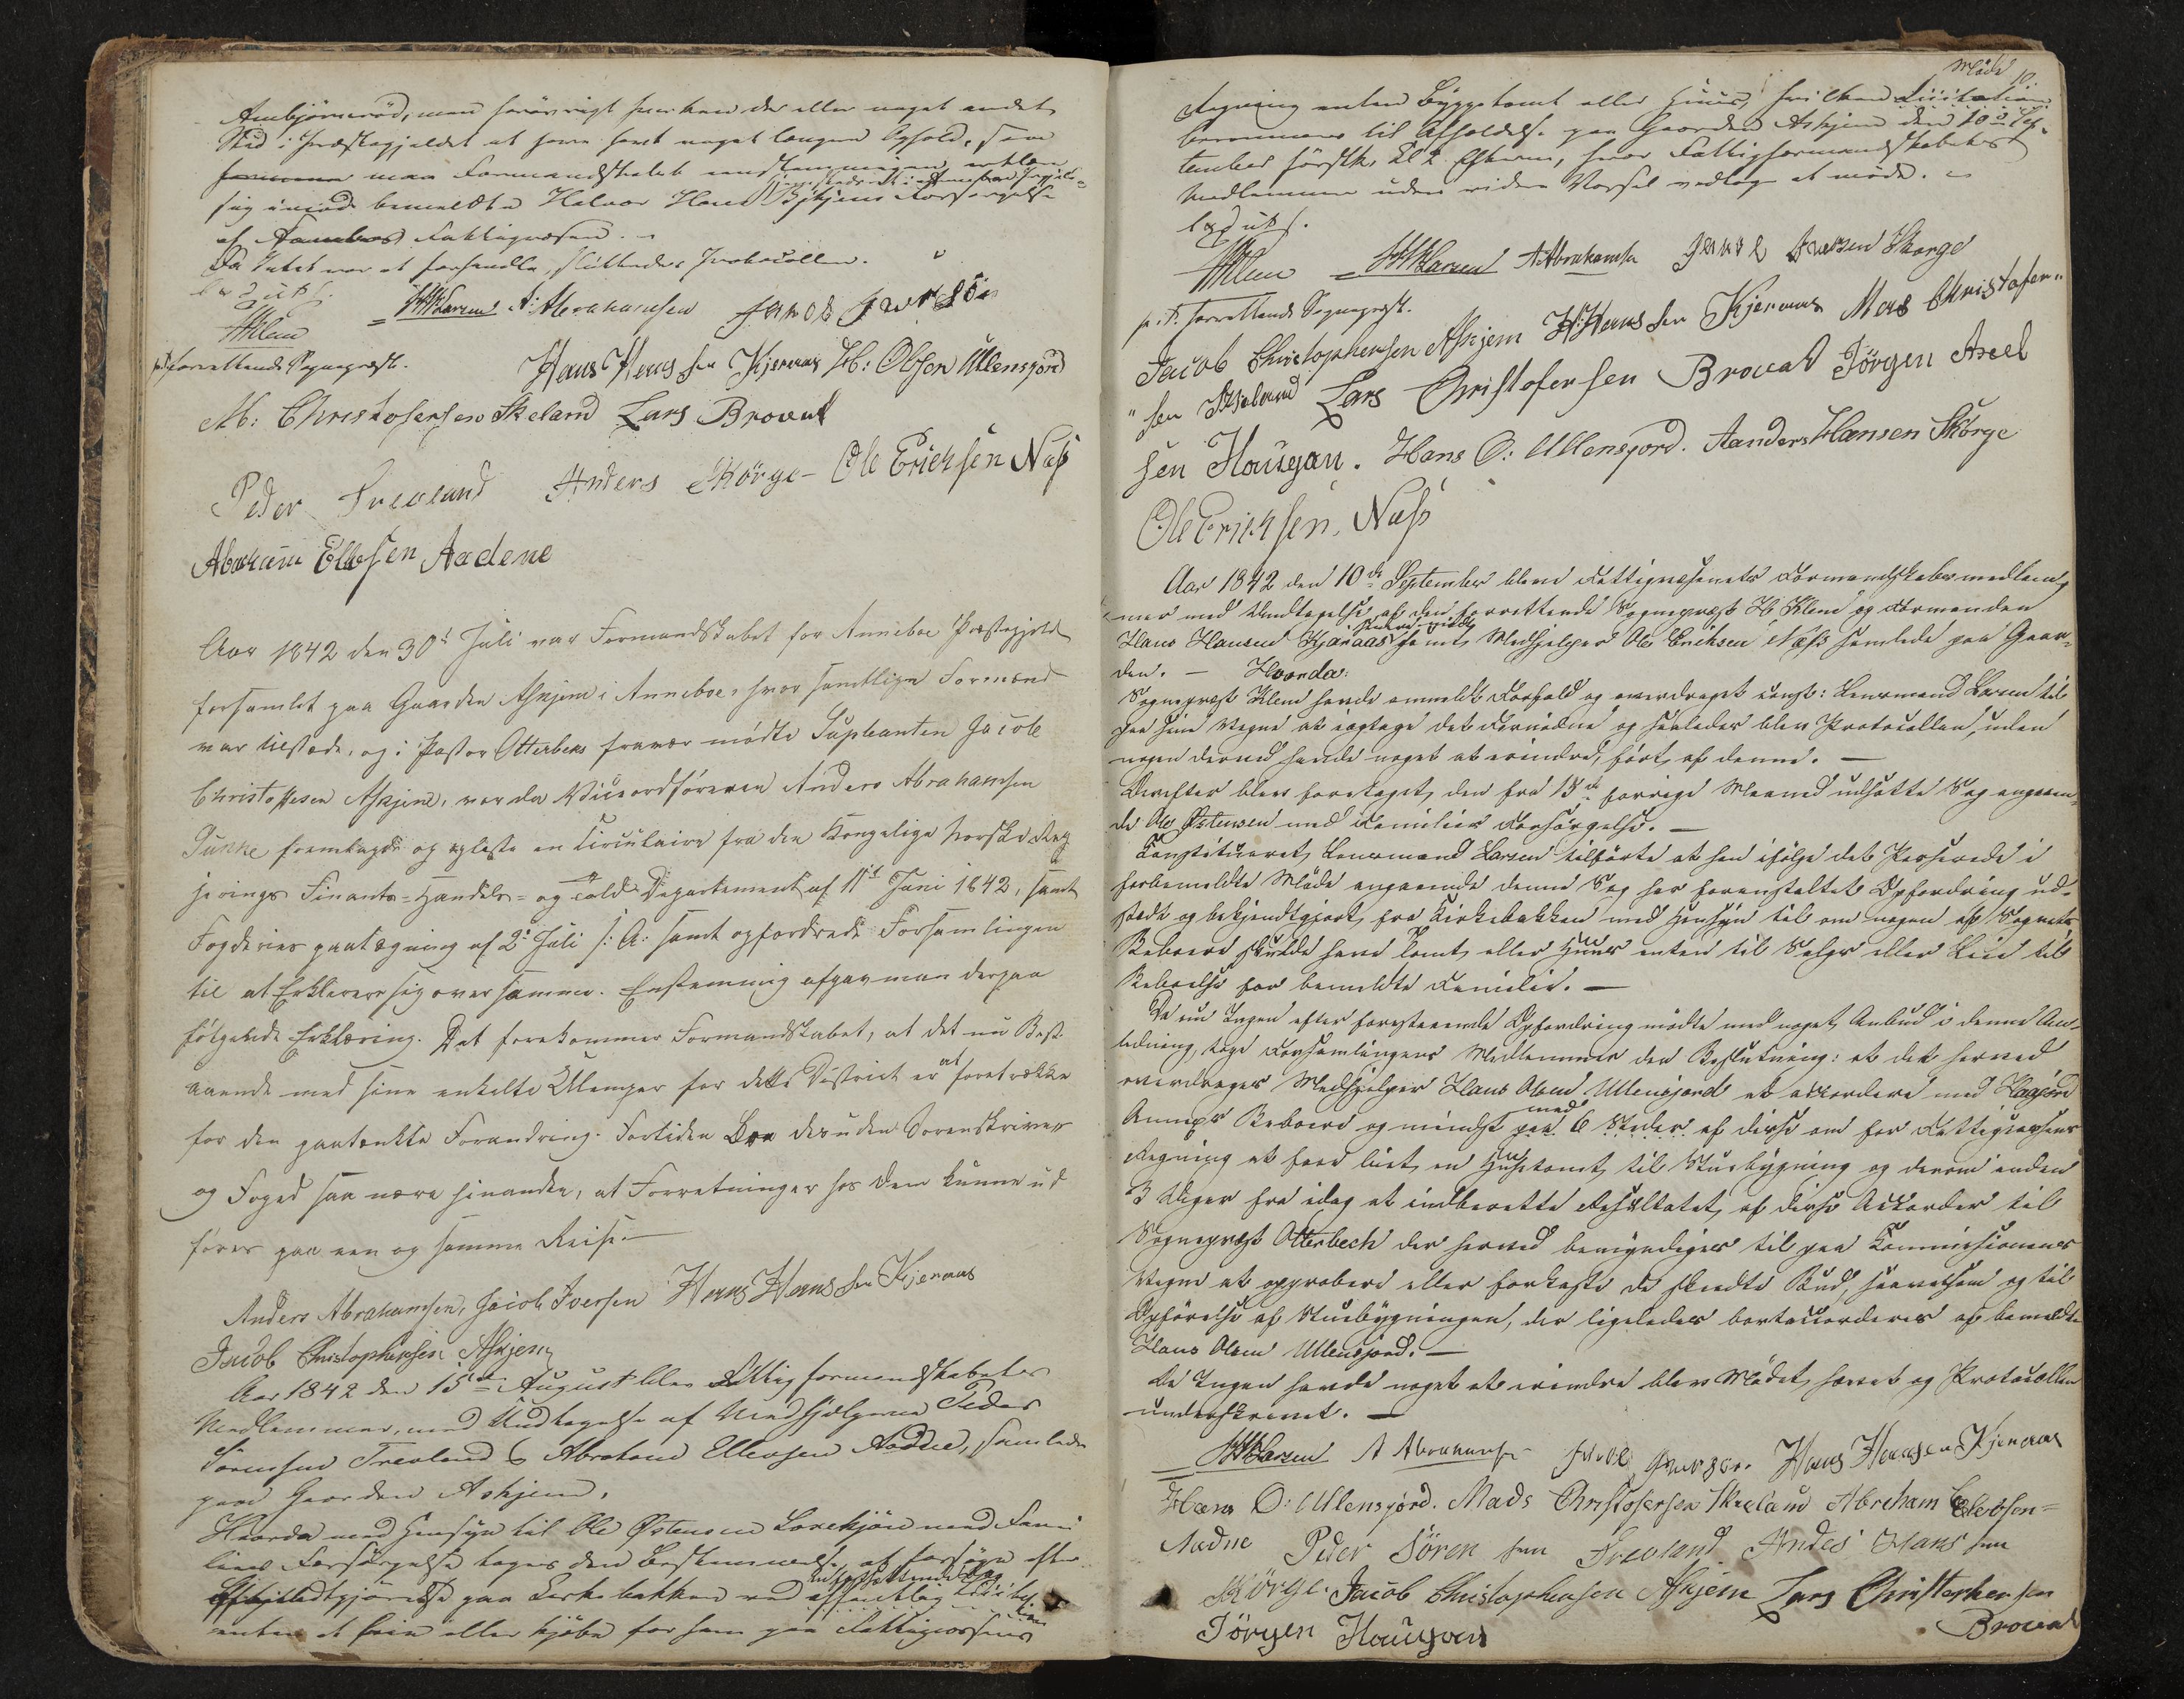 Ambjörnerød, men forøvrigt hverken der eller noget andet
Sted i Præstegjeldet at have havt noget længere Ophold, saa
maa Formandskabet eenstemmigen erklære
sig imod bemeldte Halvor Hans Forsørgelse
af Fattigvæsen.
Da Intet var at forhandle, sluttedes Protocollen.
ut s.
HKlem HHLarsen A: Abrahamsen Jakob Iversen
forrettende Sognepræst. Hans Hans sen Kjeraas H: Olsen Ullensgjord
M: Christofersen Skeland Lars Broval
Peder Trevland Anders Skörge Ole Erichsen Næss
Abraham Ellefsen Aadene
Aar 1842 den 30te Juli var Formandskabet for Anneboe Præstegjeld
forsamlet paa Gaarden Askjem i Anneboe, hvor samtlige Formænd
var tilstæde, og i Pastor Otterbecs fravær mödte Suplianten Jacob
Christoffesen Askjem, var da Viceordföreren Anders Abrahamsen
Dunke fremlagde og oplæste en Circulaire fra den Kongelige norske Reg
jerings Finants- Handels- og Told Departement af 11te Juni 1842, samt
Fogderiets paategning af 2den Juli s: A: samt opfordrede Forsamlingen
til at Erklære sig over samme. Enstemmig afgav man derpaa
fölgende Erklæring. Det forekommer Formandskabet, at det nu Best
aaende med sine enkelte Ulemper for dette District er at foretrække
for den paatænkte Forandring. Fortiden Boe desuden Sorenskriver
og Foged saa nære hinanden, at Forretninger hos dem kunne ud
föres paa een og samme Reise.
Anders Abrahamsen, Jacob Iversen Hans Hans sen Kjeraas
Jacob Christophersen Askjem
Aar 1842 den 15de August blev Fattigformandskabets
Medlemmer, med Undtagelse af Medhjelperne Peder
Sörensen Trevland & Abraham Ellevsen Aadne, samlede
paa Gaarden Askjem.
Hvorda med Hensyn til Ole Østensen med Fami
lies Forsørgelse toges den Bestemmelse at forsøge efter
paa Kirkebakken ved offentlig
enten at leie eller kjøbe for ham paa Fattigvæsenets
Møde 10.
Regning enten Byggetomt eller Huus, hvilken Licitation
berammes til Afholdelse paa Gaarden Askjem den 10de Sep-
tember förstk. Kl 2 Efterm, hvor Fattigformandskabets
Medlemmer uden videre Varsel vedtog at møde.
ut s.
HKlem HHLarsen A Abrahamsen Jakob Iversen Skorge
p. t. forrettende Sognepræst.
Jacob Christophersen Askjem H: Hans sen Kjeraas Mas Christofer-
"sen Skeland Lars Christofersen Broval Jörgen Axel
sen Haugan. Hans O: Ullensgjord. Aanders Hansen Skörge
Ole Erichsen, Næss
Aar 1842 den 10de September bleve Fattigvæsenets Formandskabsmedlem,
mer med Undtagelse af den forrettende Sognepræst H Klem og Formanden
Hans Hansen Kjæraas samt Medhjelper Ole Erichsen Næss samlede paa Gaar-
den. — Hvorda:
Sognepræst Klem havde anmeldt Forfald og overdraget const: Lensmand Larsen til
paa sine Vegne at iagtage det Fornødne og saaledes blev Protocollen, uden
nogen derved havde noget at erindre, fört af denne. —
Derefter blev foretaget den fra 15de forrige Maaned udsatte Sag angaaen-
de Ole Østensen med Families Forsörgelse. —
Constitueret Lensmand Larsen tilførte at han ifölge det Passerede i
forbemeldte Møde angaaende denne Sag har foranstaltet Opfordring ud-
stædt og bekjendtgjort fra Kirkebakken med Hensyn til om nogen af Sognets
Beboere skulde have Tomt eller Huus enten til Salgs eller Leie til
Beboelse for bemeldte Familie. —
Da nu Ingen efter foregaaende Opfordring mödte med noget Anbud i denne An-
ledning, toge Forsamlingens Medlemmer den Beslutning: at det herved
overdrages Medhjelper Hans Olsen Ullensgjord at accordere med
Annexs Beboere og mindst med paa 6 Steder af disse om for Fattigvæsenets
Regning at faae leiet en Huustomt til Stuebygning og derom inden
3 Uger fra idag at indberette Resultatet af disse Accorder til
Sognepræst Otterbech der herved bemyndiges til paa Commissionens
Vegne at approbere eller forkaste de skeedte Bud, saavelsom og til
Opførelse af Stuebygningen, der ligeledes bortaccorderes af bemeldte
Hans Olsen Ullensgjord. —
Da Ingen havde noget at erindre blev Mødet hævet og Protocollen
underskrevet. —
HHLarsen A Abrahamsen Jakob Iversen. Hans Hansen Kjeraas
Hans O: Ullensgjord. Mads Christofersen Skeland Abraham Ellevsen-
Aadne Peder Sören sen Trevland Andes Hans sen
Skörge. Jacob Christophersen Askjem Lars Christophersen
Jörgen Haugan Broval